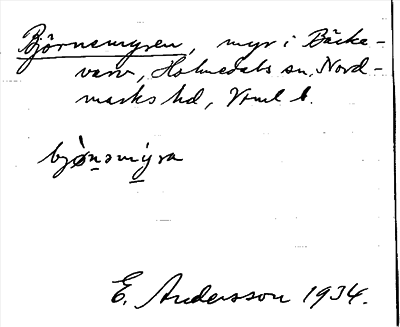 Björnemyren, myr i Bäcke-
varv, Holmedals sn, Nord-
marks hd, Vrml l.
bjò̀ṉəmy̱ra
E. Andersson 1934.